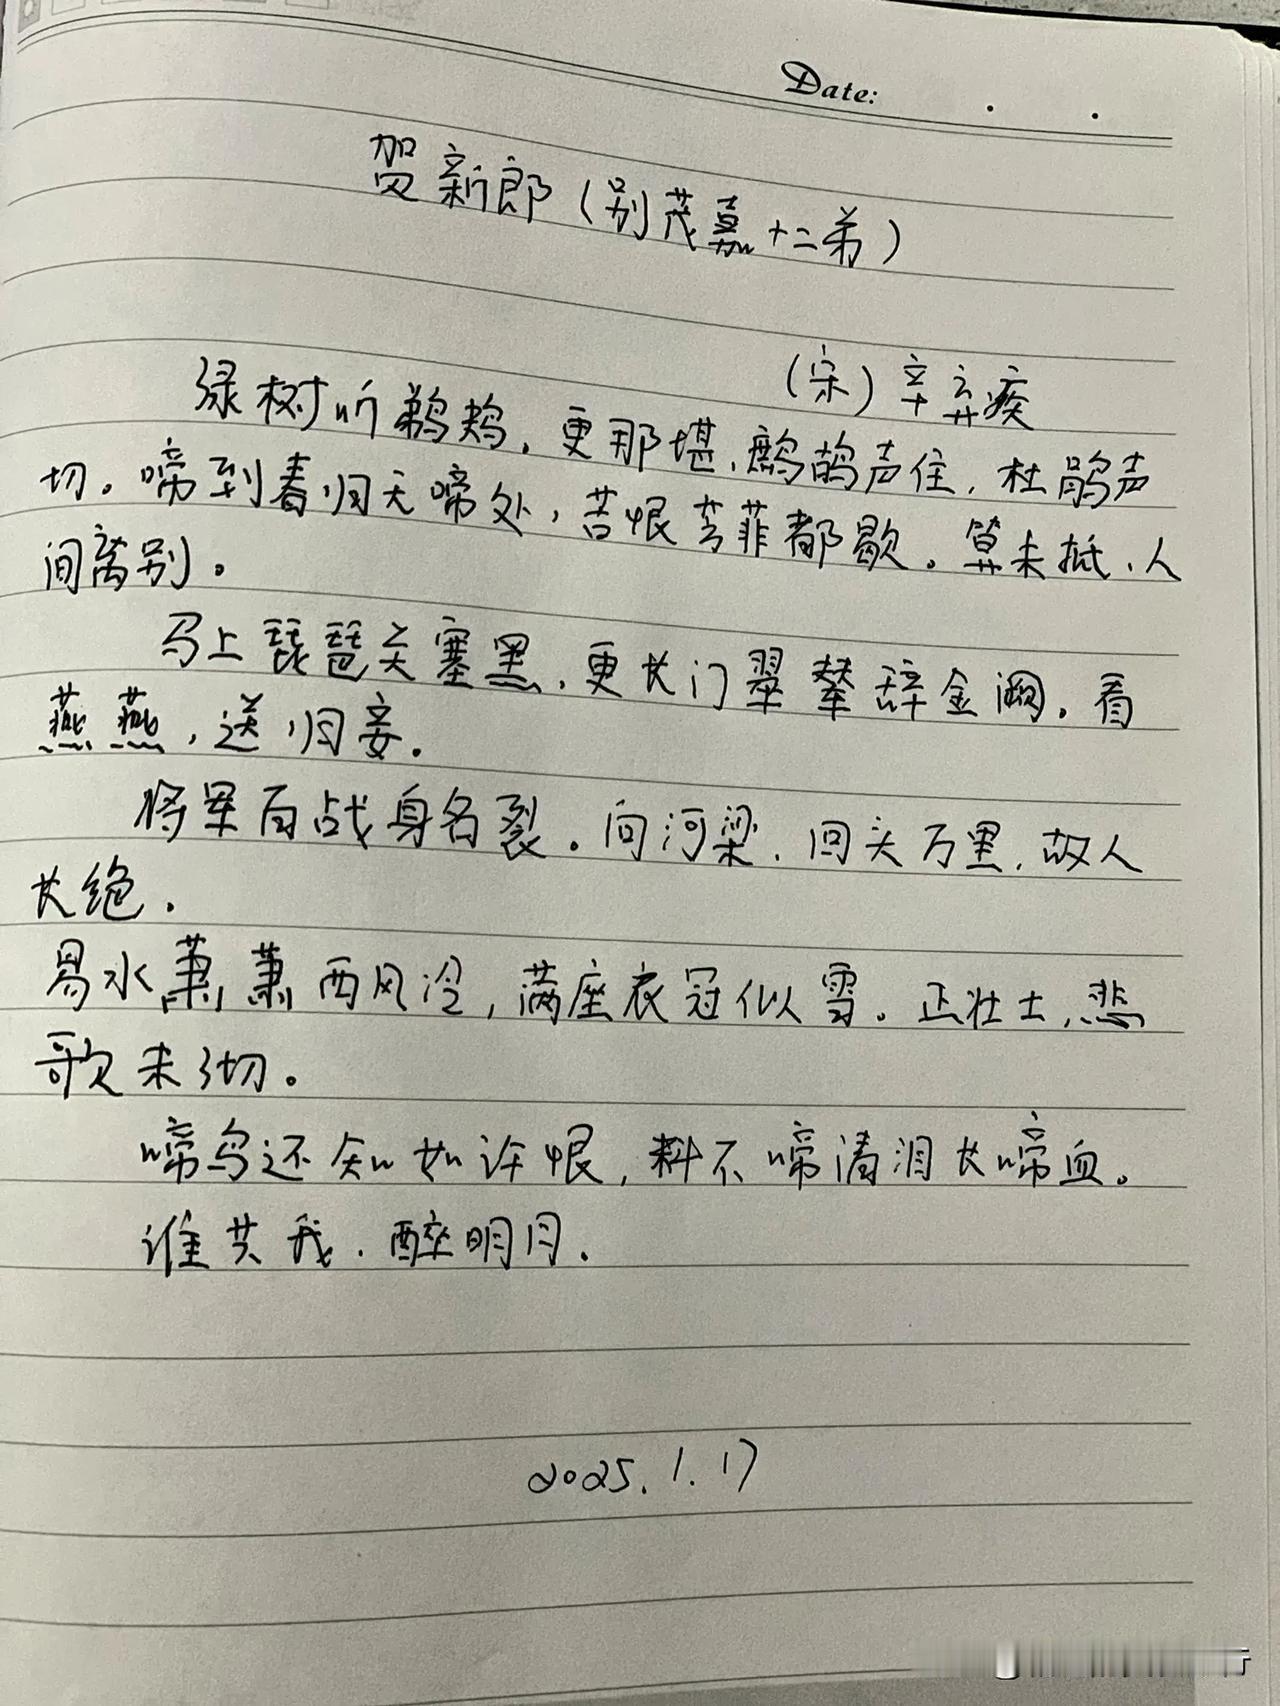 Date:
贺新郎（别茂嘉十二弟）
（宋）辛弃疾
绿树听鹈鴂，更那堪、鹧鸪声住，杜鹃声
切。啼到春归无啼处，苦恨芳菲都歇。算未抵、人
间离别。
马上琵琶关塞黑，更长门翠辇辞金阙。看
燕燕，送归妾。
将军百战身名裂。向河梁、回头万里，故人
长绝。
易水萧萧西风冷，满座衣冠似雪。正壮士、悲
歌未彻。
啼鸟还知如许恨，料不啼清泪长啼血。
谁共我，醉明月。
2025.1.17
行